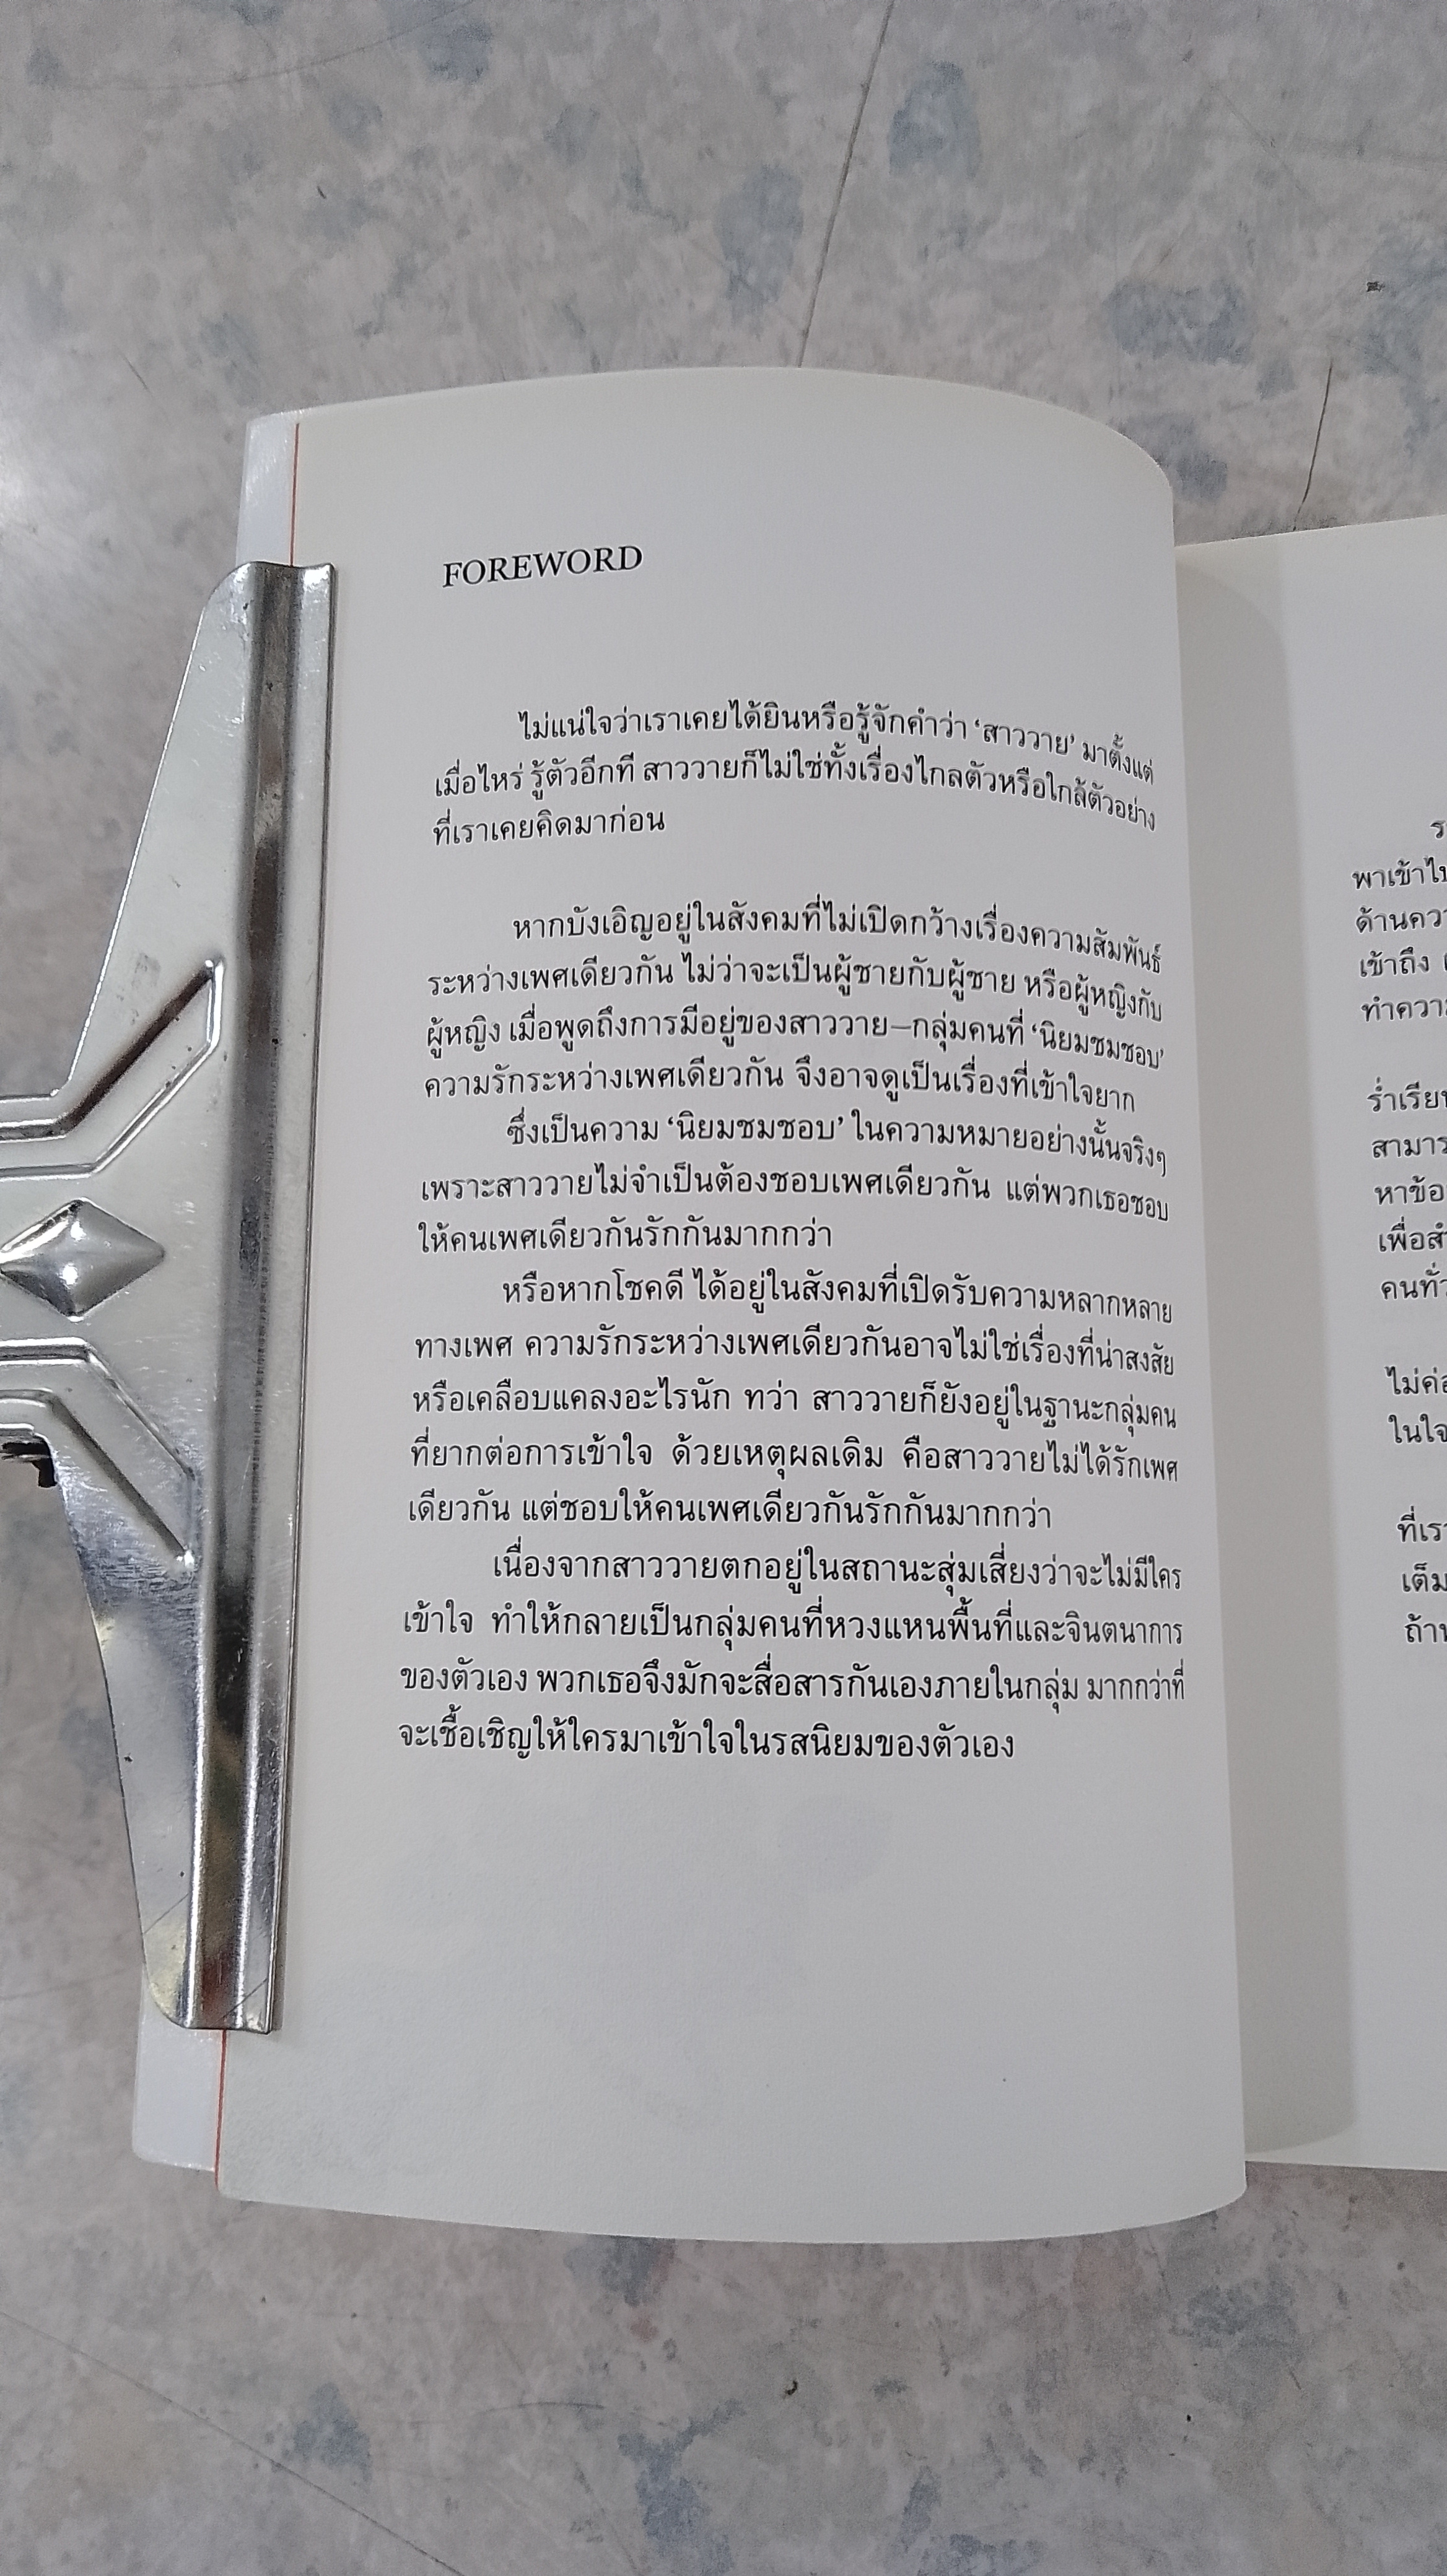 FOREWORD
ไม่แน่ใจว่าเราเคยได้ยินหรือรู้จักคำว่า ‘สาววาย’ มาตั้งแต่
เมื่อไหร่ รู้ตัวอีกที สาววายก็ไม่ใช่ทั้งเรื่องไกลตัวหรือใกล้ตัวอย่าง
ที่เราเคยคิดมาก่อน
หากบังเอิญอยู่ในสังคมที่ไม่เปิดกว้างเรื่องความสัมพันธ์
ระหว่างเพศเดียวกัน ไม่ว่าจะเป็นผู้ชายกับผู้ชาย หรือผู้หญิงกับ
ผู้หญิง เมื่อพูดถึงการมีอยู่ของสาววาย—กลุ่มคนที่ ‘นิยมชมชอบ’
ความรักระหว่างเพศเดียวกัน จึงอาจดูเป็นเรื่องที่เข้าใจยาก
ซึ่งเป็นความ ‘นิยมชมชอบ’ ในความหมายอย่างนั้นจริงๆ
เพราะสาววายไม่จำเป็นต้องชอบเพศเดียวกัน แต่พวกเธอชอบ
ให้คนเพศเดียวกันรักกันมากกว่า
หรือหากโชคดี ได้อยู่ในสังคมที่เปิดรับความหลากหลาย
ทางเพศ ความรักระหว่างเพศเดียวกันอาจไม่ใช่เรื่องที่น่าสงสัย
หรือเคลือบแคลงอะไรนัก ทว่า สาววายก็ยังอยู่ในฐานะกลุ่มคน
ที่ยากต่อการเข้าใจ ด้วยเหตุผลเดิม คือสาววายไม่ได้รักเพศ
เดียวกัน แต่ชอบให้คนเพศเดียวกันรักกันมากกว่า
เนื่องจากสาววายตกอยู่ในสถานะสุ่มเสี่ยงว่าจะไม่มีใคร
เข้าใจ ทำให้กลายเป็นกลุ่มคนที่หวงแหนพื้นที่และจินตนาการ
ของตัวเอง พวกเธอจึงมักจะสื่อสารกันเองภายในกลุ่ม มากกว่าที่
จะเชื้อเชิญให้ใครมาเข้าใจในรสนิยมของตัวเอง
พาเข้าไป
ด้านควา
เข้าถึง
ทำควา
ร่ำเรีย
สามาร
หาข้อ
เพื่อส
คนทั่ว
ไม่ค่อ
ในใจ
ที่เรา
เต็ม